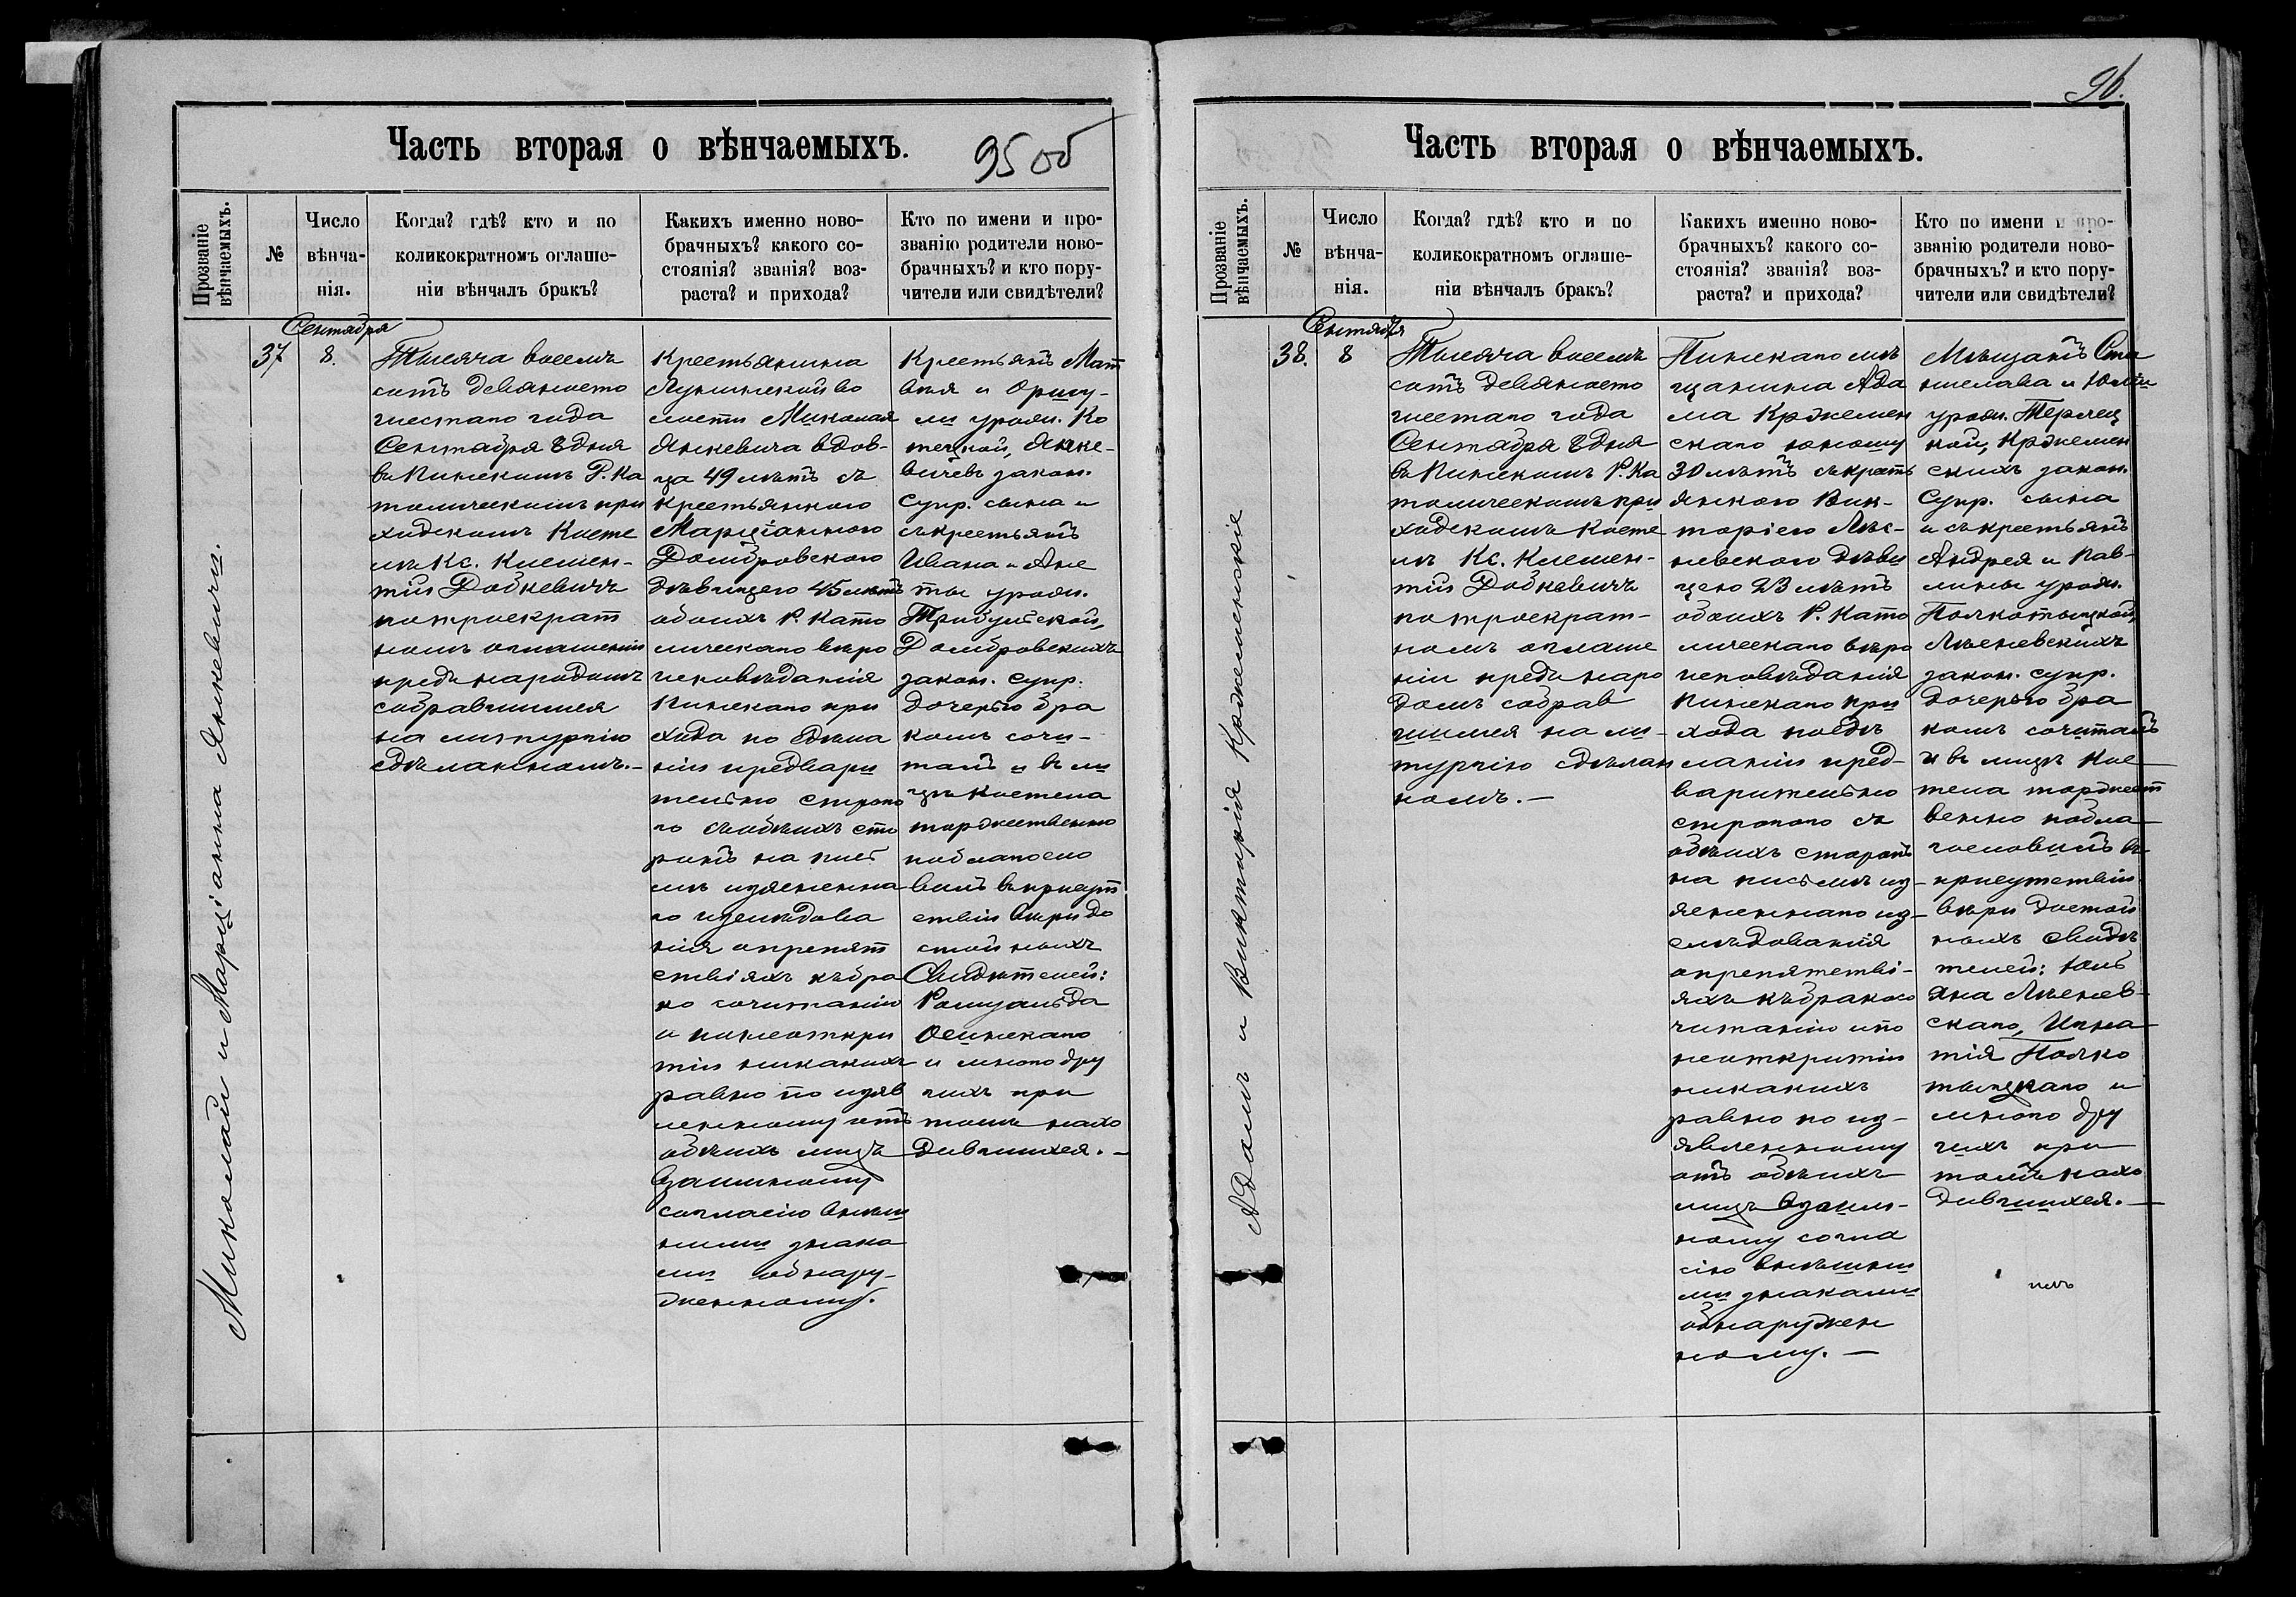 Часть вторая о вѣнчаемыхъ.
95 об
Прозваніе
вѣнчаемыхъ.
№
Число
вѣнча-
нія.
Когда? гдѣ? кто и по
коликократномъ оглаше-
ніи вѣнчалъ бракъ?
Какихъ именно ново-
брачныхъ? какого со-
стоянія? званія? воз-
раста? и прихода?
Кто по имени и про-
званію родители ново-
брачныхъ? и кто пору-
чители или свидѣтели?
Миколай и Марціанна Янкевичи.
37
Сентября
8.
Тысяча восемь
сотъ девяносто
шестаго года
Сентября 8 дня
въ Пинскомъ Р. Ка
толическомъ при
ходскомъ Косте
лѣ Кс. Клемен-
тій Добкевичъ
по троекрат
номъ оглашеніи
предъ народомъ
собравшимся
на литургію
сдѣланномъ.—
Крестьянина
Лунинской во
лости Миколая
Янкевича вдов-
ца 49 лѣтъ съ
крестьянкою
Марціанною
Домбровскою
дѣвицею 45 лѣтъ
обоихъ Р. Като
лическаго вѣро
исповѣданія
Пинскаго при
хода по сдѣла
ніи предвари
тельно строго
го съ обѣихъ сто
ронъ на пись
мѣ изясненна
го изслѣдова
нія о препят
ствіяхъ къ бра
ко сочитанію
и по неоткры
тіи никакихъ
равно по изяв
ленному отъ
обѣихъ лицъ
взаимному
согласію внѣш
ними знака
ми обнару-
женному.
Крестьянъ Мат
вѣя и
ли урожд. Ко
, Янке-
вичевъ закон.
Супр. сына и
съ крестьянъ
Ивана и Ане
ты урожд.
Домбровскихъ
закон. супр.
дочерью бра
комъ сочи-
талъ и въ ли
цѣ Костела
торжественно
поблагосло
вилъ въ присут
ствіи вѣри до
стойныхъ
Свидѣтелей:
Ромуальда
Осинскаго
и много дру
гихъ при
томъ нахо
дившихся.—
96.
Часть вторая о вѣнчаемыхъ.
Прозваніе
вѣнчаемыхъ.
№
Число
вѣнча-
нія.
Когда? гдѣ? кто и по
коликократномъ оглаше-
ніи вѣнчалъ бракъ?
Какихъ именно ново-
брачныхъ? какого со-
стоянія? званія? воз-
раста? и прихода?
Кто по имени и про-
званію родители ново-
брачныхъ? и кто пору-
чители или свидѣтели?
Адамъ и Викторія Кржеменскіе
38.
Сентября
8
Тысяча восемь
сотъ девяносто
шестаго года
Сентября 8 дня
въ Пинскомъ Р. Ка
толическомъ при
ходскомъ Косте
лѣ Кс. Клемен-
тій Добкевичъ
по троекрат-
номъ оглаше
ніи предъ наро
домъ собрав
шимся на ли-
тургію сдѣлан
номъ.—
Пинскаго мѣ
щанина Ада
ма Кржемен
скаго юношу
30 лѣтъ съ кресть
янкою Вик-
торіею Лѣс-
невскою дѣви
цею 23 лѣтъ
обоихъ Р. Като
лическаго вѣро
исповѣданія
Пинскаго при
хода по сдѣ
ланіи пред-
варительно
строгого съ
обѣихъ сторонъ
на письмѣ из-
ясненнаго из-
слѣдованія
о препятстві-
яхъ къ бракосо
читанію и по
неоткрытіи
никакихъ
равно по из-
явленному
отъ обѣихъ
лицъ взаим-
ному согла
сію внѣшни
ми знаками
обнаружен
ному.—
Мѣщанъ Ста
нислава и Юліи
урожд. Терлец
кой, Кржемен
скихъ закон.
Супр. сына
и съ крестьянъ
Андрея и Пав-
лины урожд.
Полкотыцкой,
Лѣсневскихъ
закон. супр.
дочерью бра
комъ сочиталъ
и въ лицѣ Кос
тела торжест
венно побла
гословилъ въ
присутствіи
вѣри достой
ныхъ свидѣ
телей: Юль
яна Лѣснев-
скаго, Игна
тія Полко
тыцкаго и
много дру
гихъ при
томъ нахо
дившихся.—